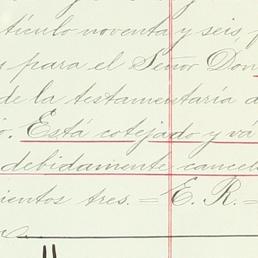 tículo noventa y seis
para el Señor Don
de la testamentaría
Está cotejado y vá
debidamente cancel
ientos tres. = E. R. =